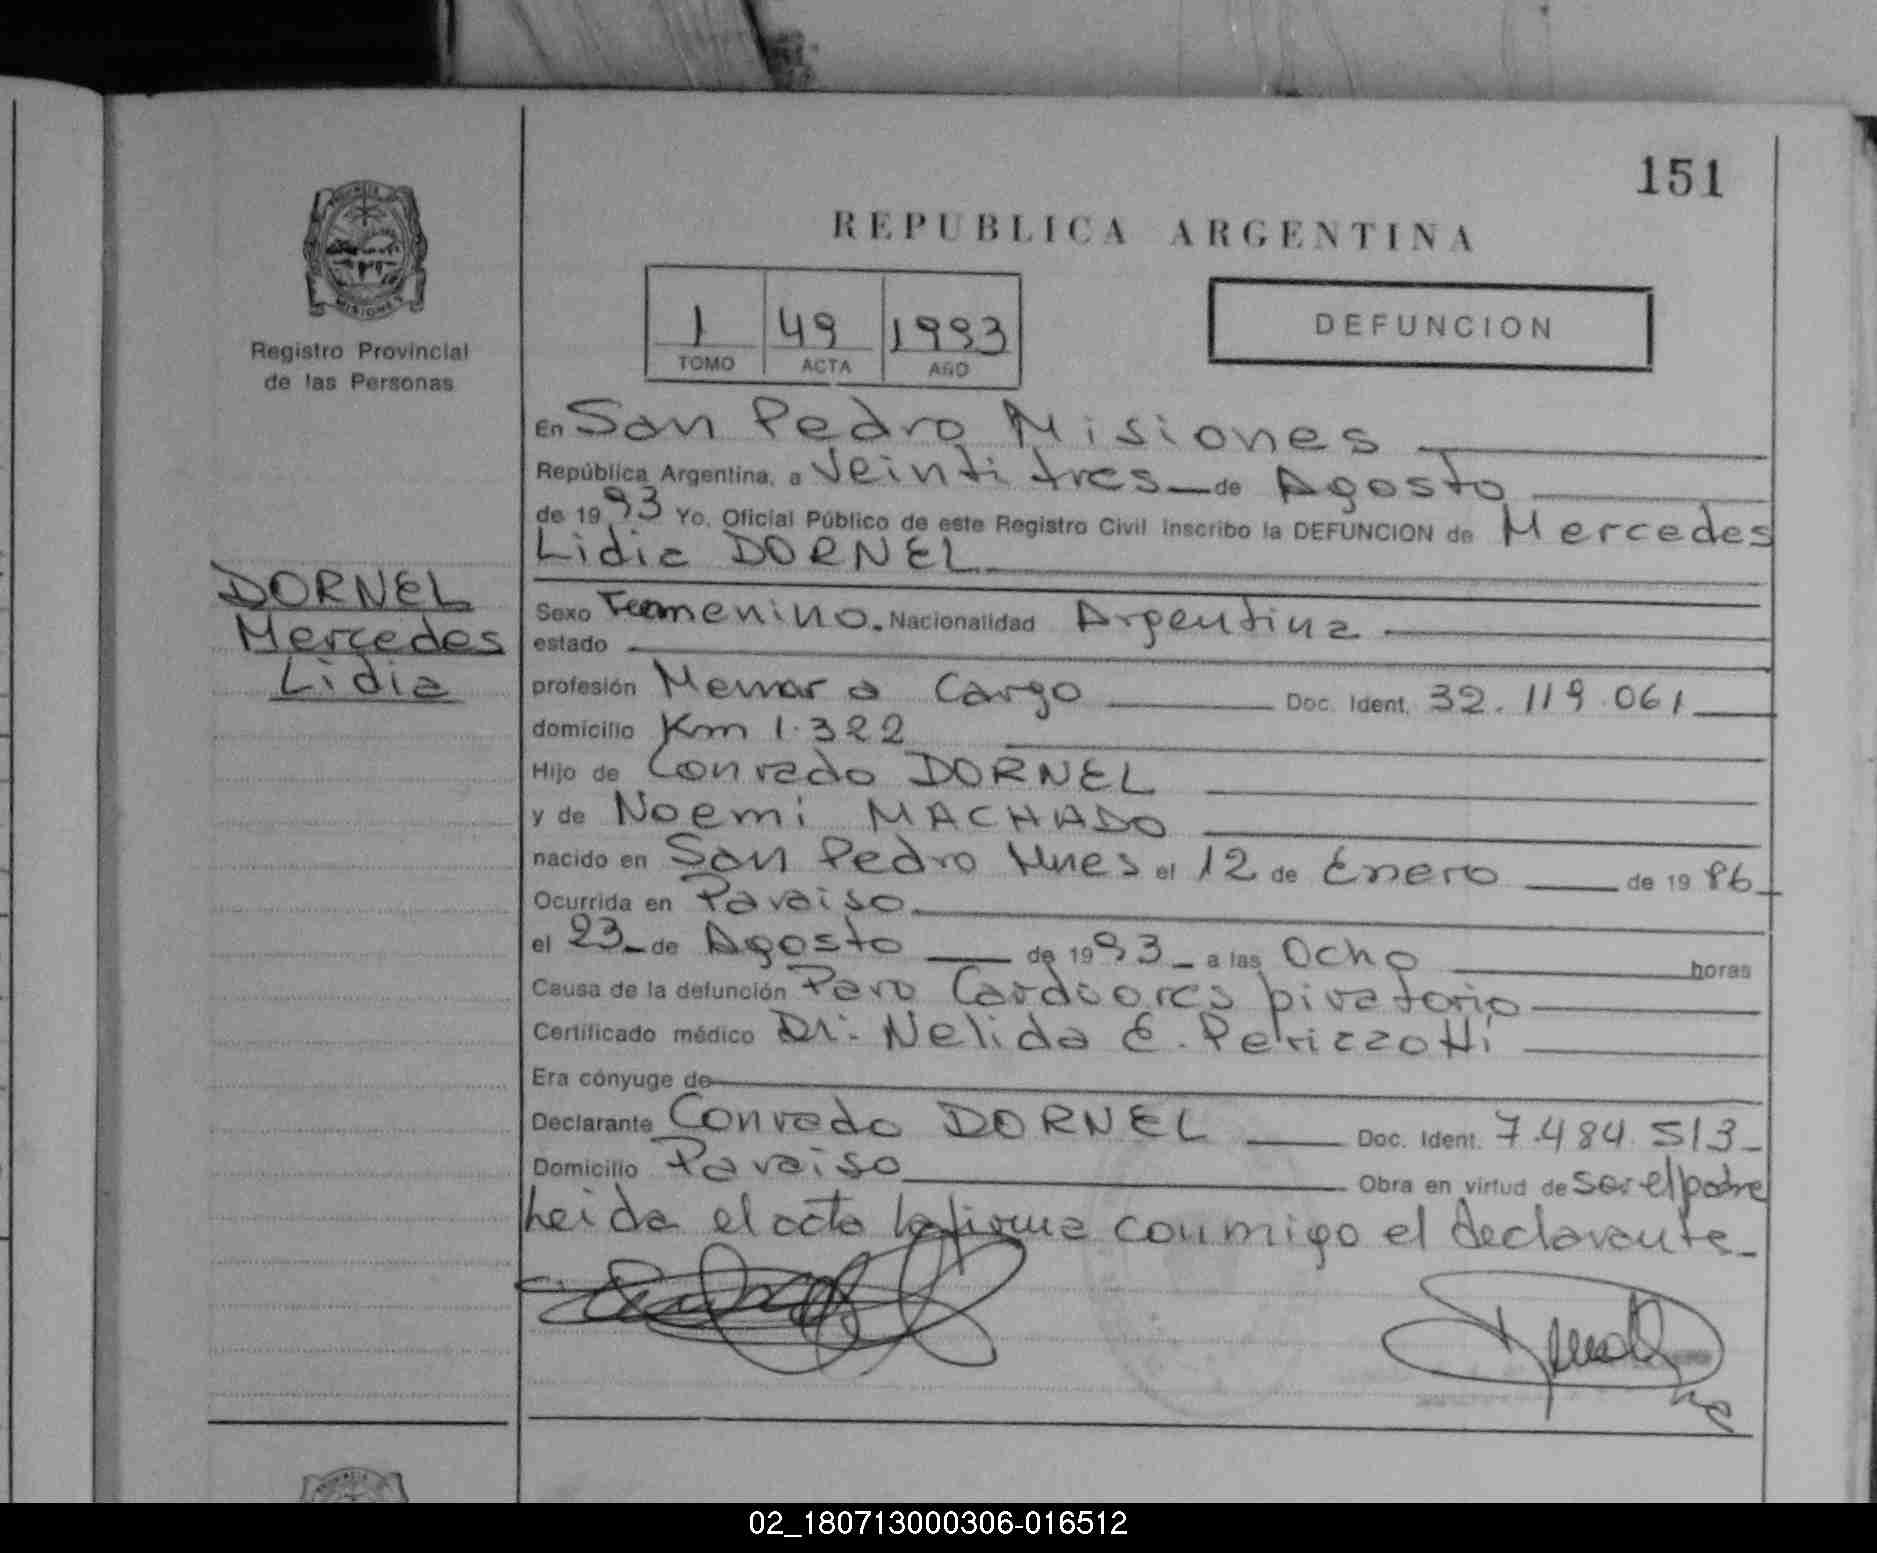 151
REPUBLICA ARGENTINA
MISIONES
Registro Provincial
de las Personas
1 49 1993
TOMO ACTA AÑO
DEFUNCION
En San Pedro Misiones
República Argentina, a Veinti tres de Agosto
de 19 93 Yo, Oficial Público de este Registro Civil Inscribo la DEFUNCION de Mercedes
Lidia DORNEL
DORNEL
Mercedes
Lidia
Sexo Femenino. Nacionalidad Argentina
estado
profesión Menor a Cargo Doc. Ident. 32.119.061
domicilio Km 1.322
Hijo de Conrado DORNEL
y de Noemi MACHADO
nacido en San Pedro Mnes el 12 de Enero de 19 86
Ocurrida en Paraiso
el 23 de Agosto de 19 93 a las Ocho horas
Causa de la defunción Paro Cardiorespiratorio
Certificado médico Dr. Nelida E. Perizzotti
Era cónyuge de
Declarante Conrado DORNEL Doc. Ident. 7.484.513
Domicilio Paraiso Obra en virtud de ser el padre
Leida el acta la firma conmigo el declarante
02_180713000306-016512